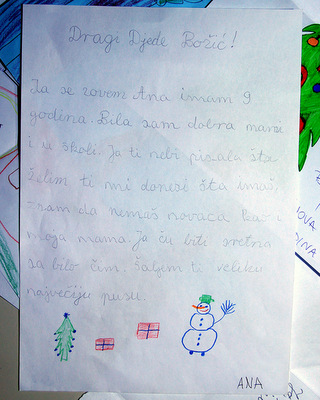 Dragi Djede Božić!
Ja se zovem Ana imam 9
godina. Bila sam dobra mami
i u školi. Ja ti nebi pisala šta
želim ti mi donesi šta imaš.
Znam da nemaš novaca kao i
moja mama. Ja ću biti sretna
sa bilo čim. Šaljem ti veliku
najvećiju pusu.
ANA
OVA
DINA